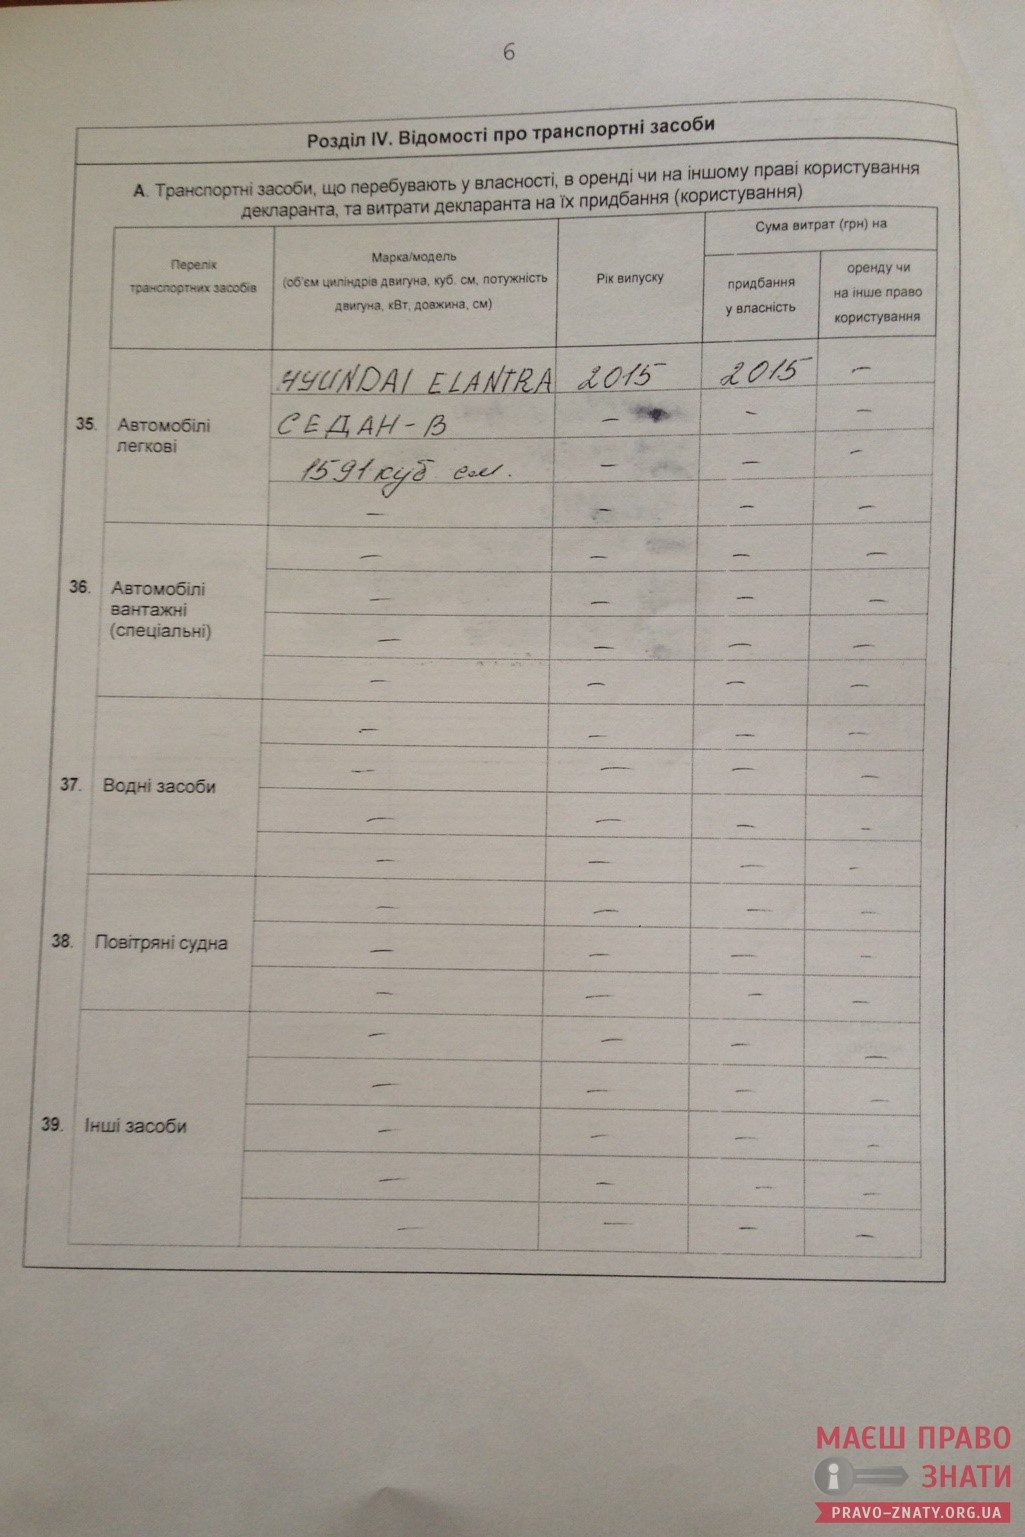 6
Розділ IV. Відомості про транспортні засоби
А. Транспортні засоби, що перебувають у власності, в оренді чи на іншому праві користування
декларанта, та витрати декларанта на їх придбання (користування)
Перелік
транспортних засобів
Марка/модель
(об'єм циліндрів двигуна, куб. см, потужність
двигуна, кВт, довжина, см)
Рік випуску
Сума витрат (грн) на
придбання
у власність
оренду чи
на інше право
користування
35. Автомобілі
легкові
HYUNDAI ELANTRA 2015 2015 –
СЕДАН-В – – –
1591 куб см. – – –
– – – –
36. Автомобілі
вантажні
(спеціальні)
– – – –
– – – –
– – – –
– – – –
37. Водні засоби
– – – –
– – – –
– – – –
– – – –
38. Повітряні судна
– – – –
– – – –
– – – –
39. Інші засоби
– – – –
– – – –
– – – –
– – – –
– – – –
МАЄШ ПРАВО
ЗНАТИ
PRAVO-ZNATY.ORG.UA